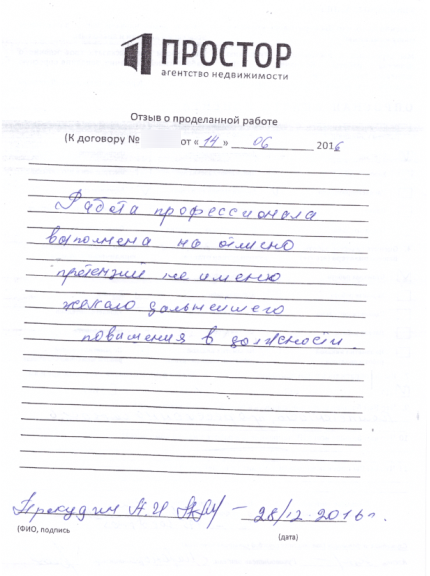 ПРОСТОР
агентство недвижимости
Отзыв о проделанной работе
(К договору № от « 14 » 06 2016
Работа профессионала
выполнена на отлично
претензий не имею
желаю дальнейшего
повышения в должности.
Пракудин А.И – 28/12 2016 г.
(ФИО, подпись (дата)